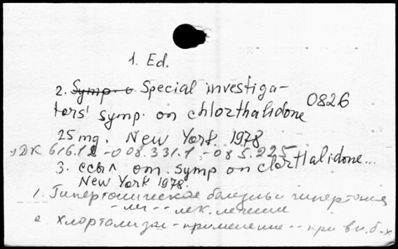 1. Ed.
2. Symp. o Special investiga-
tors' symp. on chlorthalidone 0826
25 mg. New York. 1978
УДК 616.12-008.331.1-085.225
3. ссыл. от. symp on clorthalidone...
New York 1978.
1. Гипертоническая болезнь и гипертония
-//- -лек. лечение
2. Хлорталидон-применение--при вн. б-х